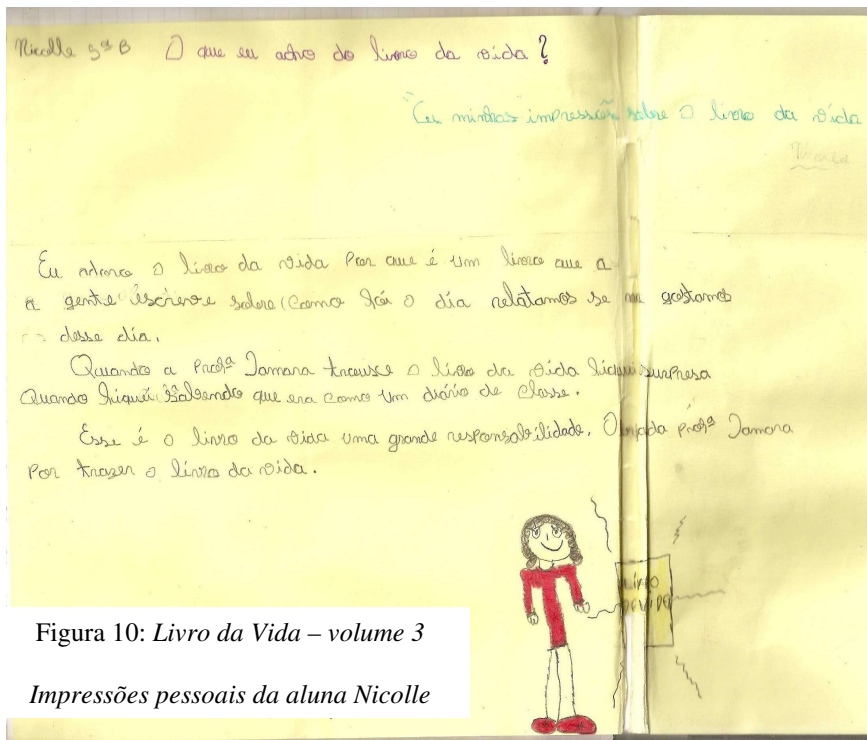 Nicolle 5ª B O que eu acho do livro da vida?
"As minhas impressões sobre o livro da vida
Nicolle
Eu adoro o livro da vida Por que é um livro que a
a gente iscreve sobre (Como foi o dia relatamos se gostamos
desse dia.
Quando a Profª Tamara trousce o livro da vida fiquei surpresa
Quando fiquei Sabendo que era como um diário de classe.
Esse é o livro da vida uma grande responsabilidade. Obrigada profª Tamara
Por trazer o livro da vida.
LIVRO
DA VIDA
Figura 10: Livro da Vida – volume 3
Impressões pessoais da aluna Nicolle